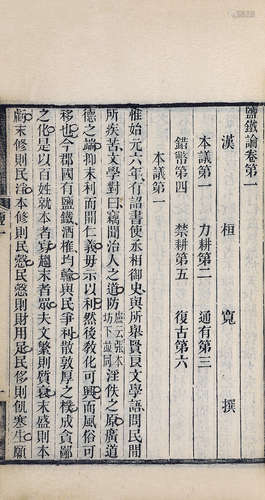 鹽鐵論卷第一
漢 桓 寬 撰
本議第一 力耕第二 通有第三
錯幣第四 禁耕第五 復古第六
本議第一
惟始元六年有詔書使丞相御史與所舉賢良文學語問民間
所疾苦文學對曰竊聞治人之道防盧云張本坊下並同淫佚之原廣道
德之端抑末利而開仁義毋示以利然後敎化可興而風俗可
移也今郡國有鹽鐵酒榷均輸與民爭利散敦厚之樸成貪鄙
之化是以百姓就本者寡趨末者眾夫文繁則質衰末盛則本
虧末修則民淫本修則民慤民慤則財用足民侈則飢寒生願